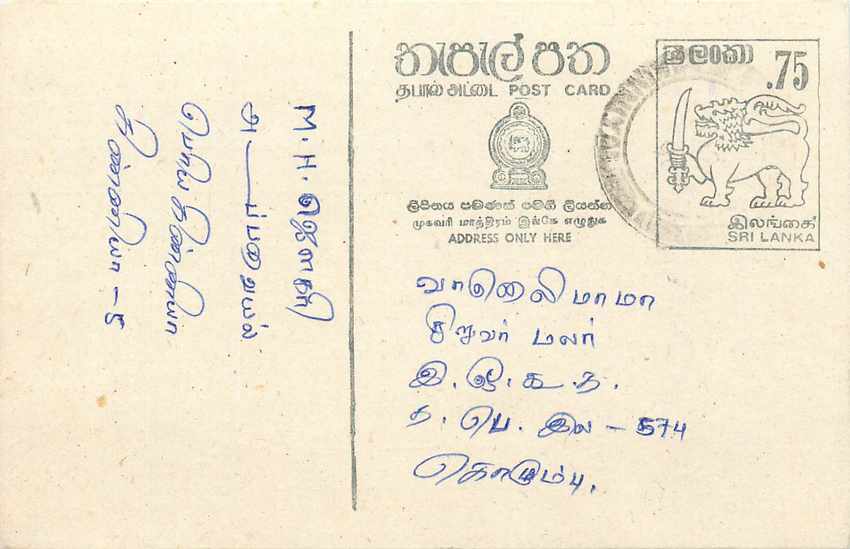 තැපැල් පත
தபால் அட்டை POST CARD
ශ්‍රී ලංකා
.75
ලිපිනය පමණක් මෙහි ලියන්න
முகவரி மாத்திரம் இங்கே எழுதுக
ADDRESS ONLY HERE
இலங்கை
SRI LANKA
வானொலி மாமா
சிறுவர் மலர்
இ. ஒ. கூ. த.
த. பெ. இல - 574
கொழும்பு.
M. H.
பெரிய கிண்ணியா
கிண்ணியா - 5